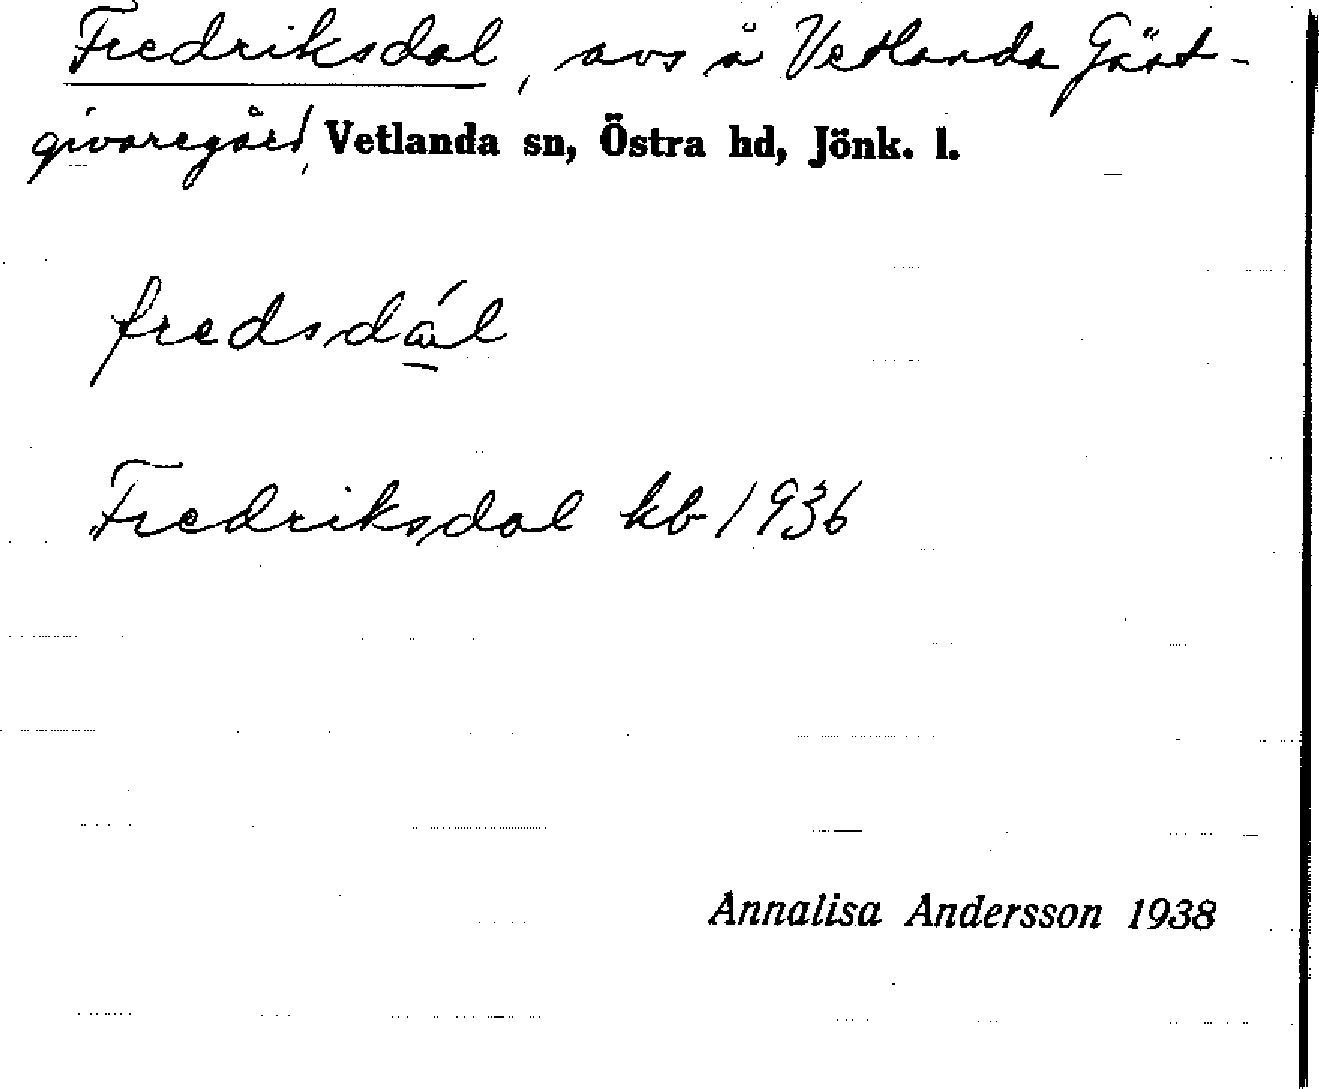 Fredriksdal, avs å Vetlanda Gäst-
givaregård, Vetlanda sn, Östra hd, Jönk. l.
fredsdál
Fredriksdal kb 1936
Annalisa Andersson 1938